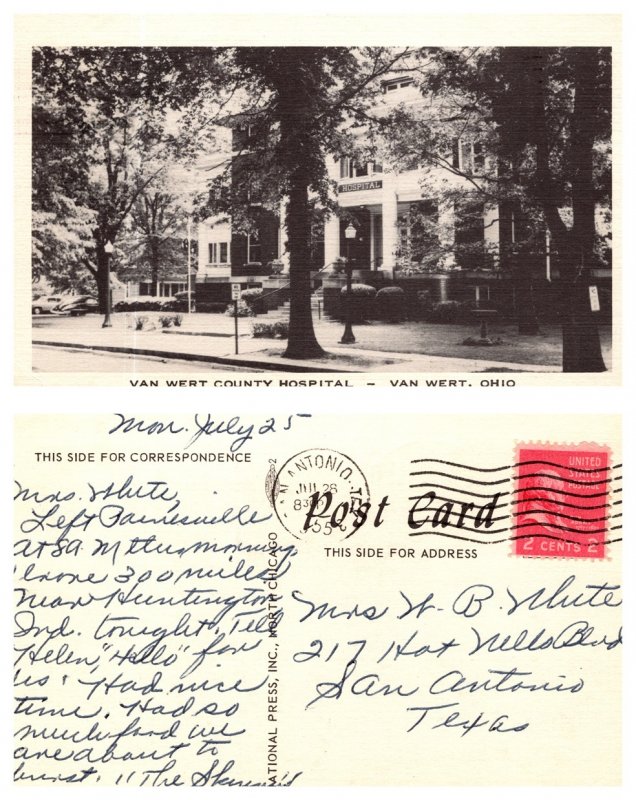 HOSPITAL
VAN WERT COUNTY HOSPITAL – VAN WERT, OHIO
Mon. July 25
THIS SIDE FOR CORRESPONDENCE
Mrs. White,
Left Painesville
at 8 A.M this morning
drove 300 miles
Near Huntington
Ind. tonight. Tell
Helen, "Hello" for
us. Had nice
time. Had so
much food we
are about to
burst. "The
NATIONAL PRESS, INC., NORTH CHICAGO
2
SAN ANTONIO, TEX
JUL 26
Post Card
THIS SIDE FOR ADDRESS
UNITED
STATES
POSTAGE
2 CENTS 2
Mrs W. B. White
217 Hot Wells Blvd
San Antonio
Texas